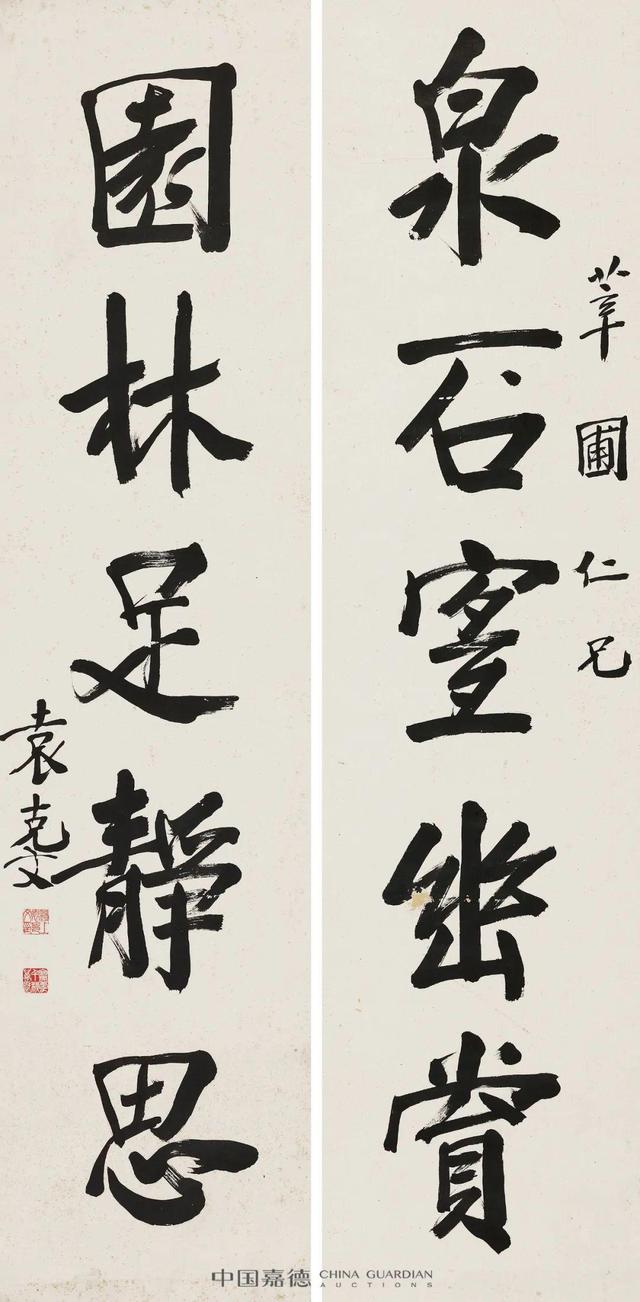 莘圃仁兄
泉石宜幽賞
園林足靜思
袁克文
中国嘉德 CHINA GUARDIAN AUCTIONS